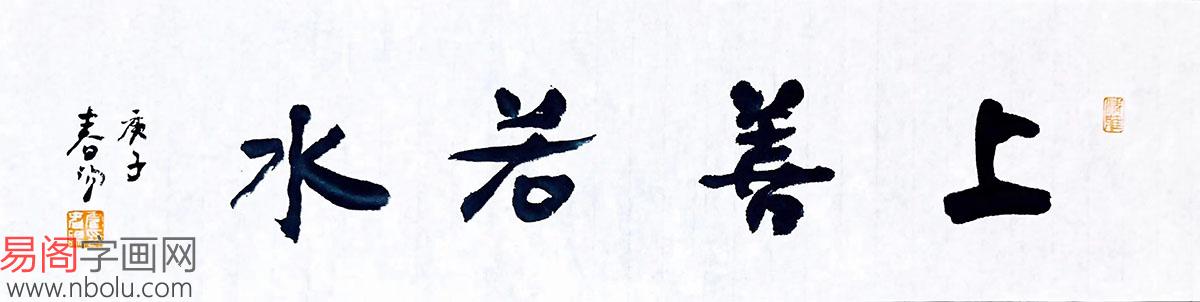 上善若水
庚子
春
易阁字画网
www.nbolu.com